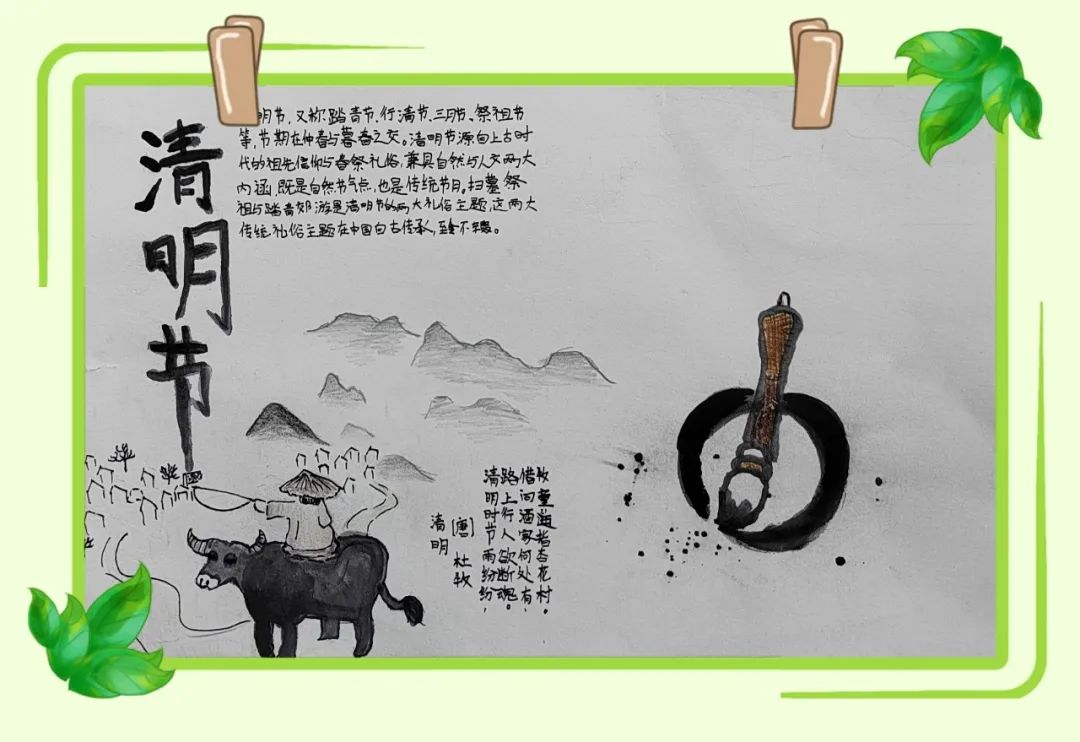 清明节
明节，又称踏青节、行清节、三月节、祭祖节
等，节期在仲春与暮春之交。清明节源自上古时
代的祖先信仰与春祭礼俗，兼具自然与人文两大
内涵，既是自然节气点，也是传统节日。扫墓祭
祖与踏青郊游是清明节的两大礼俗主题，这两大
传统礼俗主题在中国自古传承，至今不辍。
清明
[唐] 杜牧
清明时节雨纷纷，
路上行人欲断魂。
借问酒家何处有，
牧童遥指杏花村。